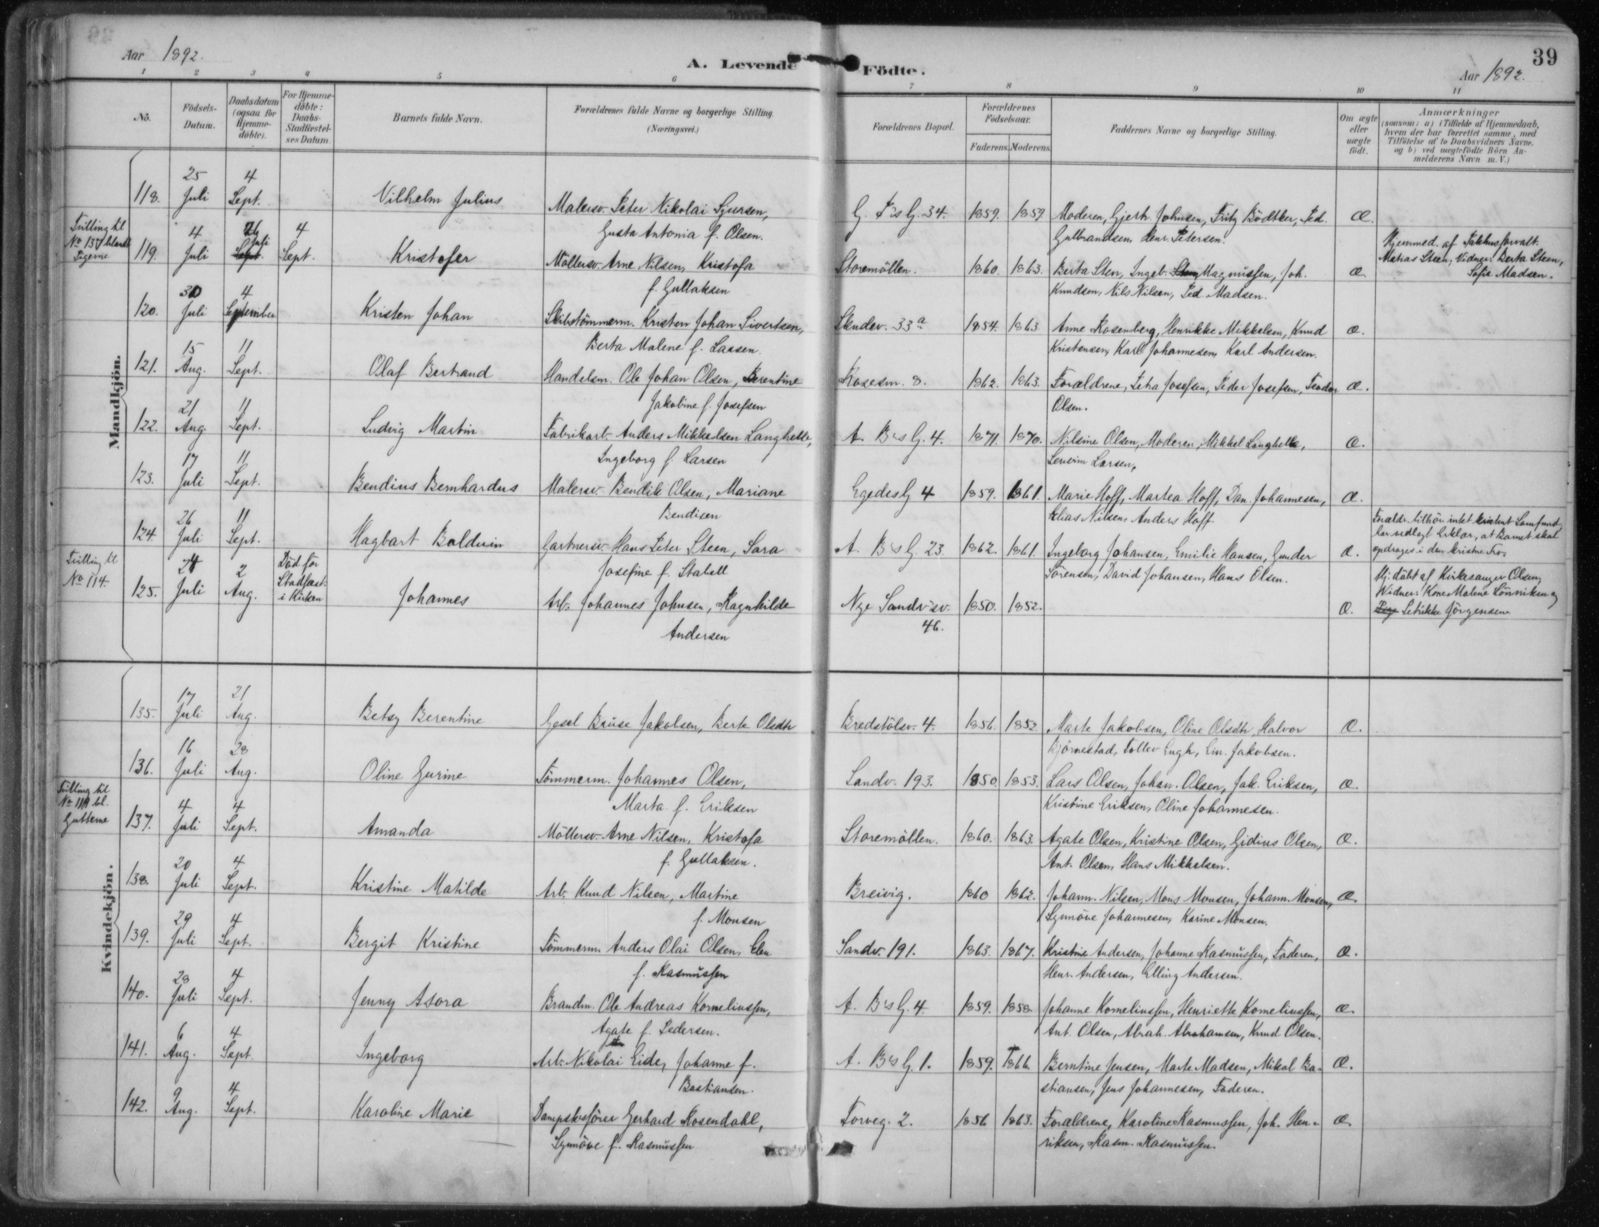 Aar 1892.
A. Levende Födte.
39
Aar 1892.
1 2 3 4 5 6 7 8 9 10 11
No.
Födsels-Datum.
Daabsdatum (ogsaa for Hjemmedöbte).
For Hjemmedöbte: Daabs-Stadfæstelses Datum
Barnets fulde Navn.
Forældrenes fulde Navne og borgerlige Stilling (Næringsvei.)
Forældrenes Bopæl.
Forældrenes Födselsaar.
Faderens.
Moderens.
Faddernes Navne og borgerlige Stilling.
Om ægte eller uægte födt.
Anmærkninger (saasom: a) i Tilfælde af Hjemmedaab, hvem der har forrettet samme, med Tilföielse af to Daabsvidners Navne, og b) ved uægtefödte Börn Anmelderens Navn m. V.)
Mandkjön.
118. 25 Juli 4 Sept. Vilhelm Julius Malersv. Peter Nikolai Sjursen,
Gusta Antonia f. Olsen.
34. 1859. 1859 Moderen, Gjert Johnsen, Fritz Bödtker, Ped.
Gulbrandsen, Henr. Petersen. Æ.
Tvilling til No 137 blandt Pigerne
119. 4 Juli 26 Juli 4 Sept. Kristofer Möllersv. Arne Nilsen, Kristofa
f. Gullaksen
Storemöllen. 1860. 1863. Berta Sten, Ingeb. Magnussen, Joh.
Knudsen, Nils Nilsen, Ped. Madsen. Æ.
Hjemmed. af Pakhusforvalt.
Matias Steen, Vidner: Berta Steen,
Sofie Madsen.
120. 30 Juli 4 September Kristen Johan Skibstömmerm. Kristen Johan Sivertsen,
Berta Malene f. Lassen.
33a 1854. 1863 Anne Rosenberg, Henrikke Mikkelsen, Knud
Kristensen, Karl Johannesen, Karl Andersen. Æ.
121. 15 Aug. 11 Sept. Olaf Bertrand Handelsm. Ole Johan Olsen, Berentine
Jakobine f. Josefsen
8. 1862. 1863. Forældrene, Petra Josefsen, Peder Josefsen, Teodor
Olsen. Æ.
122. 21 Aug. 11 Sept. Ludvig Martin Fabrikarb. Anders Mikkelsen Langhelle,
Ingeborg f. Larsen
A. B's G. 4. 1871. 1870. Nilsine Olsen, Moderen, Mikkel Langhelle,
Larsen, Æ.
123. 17 Juli 11 Sept. Bendius Bernhardus Malersv. Bendik Olsen, Mariane
Bendixen
Egedes G 4 1859. 1861. Marie Hoff, Martea Hoff, Dan. Johannesen,
Elias Nilsen, Anders Hoff. Æ.
124. 26 Juli 11 Sept. Hagbart Baldvin Gartnersv. Hans Peter Steen, Sara
Josefine f.
A. B's G. 23. 1862. 1861. Ingeborg Johansen, Emilie Hansen, Gunder
Sörensen, David Johansen, Hans Olsen. Æ.
Foreldr. tilhör intet kristent Samfund,
har vedlagt Erklær., at Barnet skal
opdrages i den kristne Tro,
Tvilling til No 114.
125. 24 Juli 2 Aug. Död för Stadfæst. i Kirken Johannes Arb. Johannes Johnsen, Ragnhilde
Andersen
Nye Sandv.sv. 46. 1850. 1852. Æ.
Hj. döbt af Kirkesanger Olsen,
Vidner: Kone Malene og
Petrikke Jörgensen
Kvindekjön.
135. 17 Juli 21 Aug. Betsy Berentine Jakobsen, Berte Olsdtr
4. 1856. 1852. Marte Jakobsen, Oline Olsdtr, Halvor
Björnestad, Tollev Engh, Em. Jakobsen. Æ.
136. 16 Juli 28 Aug. Oline Gurine Tömmerm. Johannes Olsen,
Marta f. Eriksen
Sandv. 193. 1850. 1853. Lars Olsen, Johan Olsen, Jak. Eriksen,
Kristine Eriksen, Oline Johannesen. Æ.
Tvilling til No 119 bl. Guttene
137. 4 Juli 4 Sept. Amanda Möllersv. Arne Nilsen, Kristofa
f. Gullaksen.
Storemöllen. 1860. 1863. Agate Olsen, Kristine Olsen, Gidius Olsen,
Ant. Olsen, Hans Mikkelsen. Æ.
138. 20 Juli 4 Sept. Kristine Matilde Arb. Knud Nilsen, Martine
f. Monsen
Breivig. 1860 1862. Johann. Nilsen, Mons Monsen, Johann. Monsen,
Synnöve Johannesen, Karine Monsen. Æ.
139. 29 Juli 4 Sept. Bergit Kristine Tömmerm. Anders Olai Olsen, Elen
f. Rasmussen
Sandv. 191. 1863. 1867. Kristine Andersen, Johanne Rasmussen, Faderen,
Henr. Andersen, Elling Andersen. Æ.
140. 28 Juli 4 Sept. Jenny Asora Brandm. Ole Andreas Korneliussen,
Agate f. Pedersen.
A. B's G. 4 1859. 1858. Johanne Korneliussen, Henriette Korneliussen,
Ant. Olsen, Abrah. Abrahamsen, Knud Olsen. Æ.
141. 6 Aug. 4 Sept. Ingeborg Arb. Nikolai Eide, Johanne f.
Bastiansen.
A. B's G. 1. 1859. 1866. Berntine Jensen, Marte Madsen, Mikal Ba-
stiansen, Jens Johannesen, Faderen. Æ.
142. 9 Aug. 4 Sept. Karoline Marie Dampskibsförer Gerhard Rosendahl,
Synnöve f. Rasmussen
Torveg. 2. 1856 1863. Forældrene, Karoline Rasmussen, Joh. Hen-
riksen, Rasm. Rasmussen. Æ.